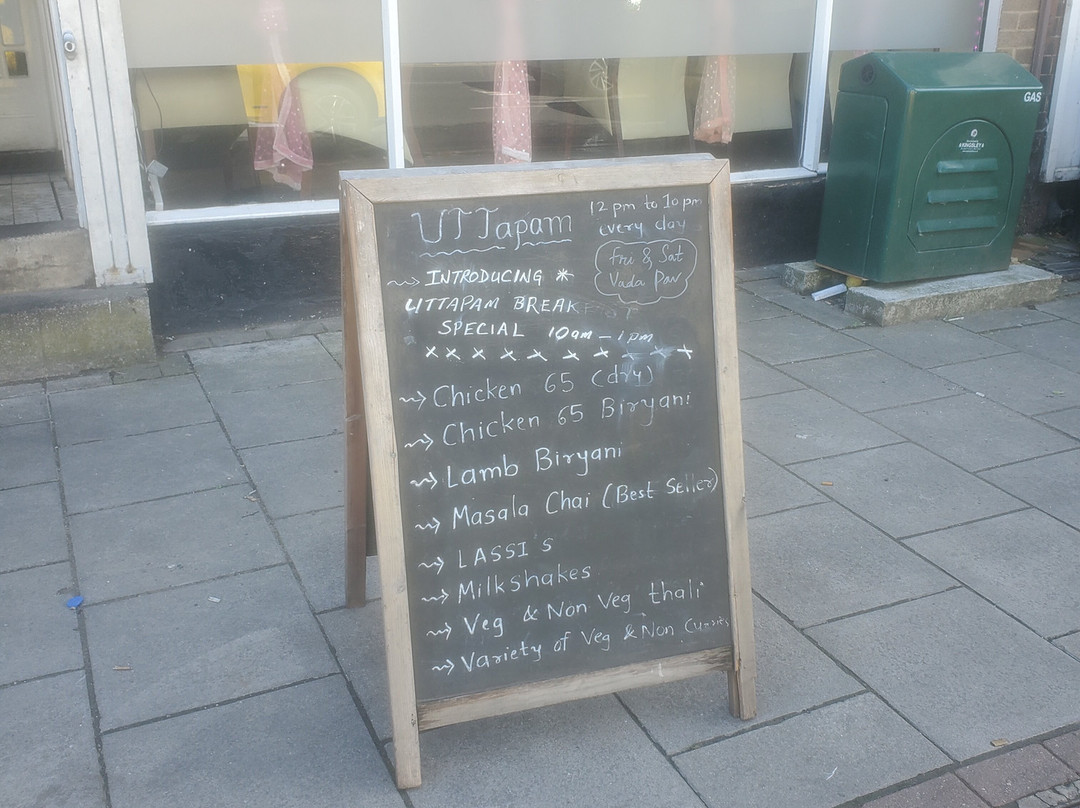 UTTapam
12 pm to 10 pm
every day
Fri & Sat
Vada Pav
INTRODUCING *
UTTAPAM BREAKFAST
SPECIAL 10am - 1pm
xxxxxxxxxx
Chicken 65 (dry)
Chicken 65 Biryani
Lamb Biryani
Masala Chai (Best Seller)
LASSI'S
Milkshakes
Veg & Non Veg thali
Variety of Veg & Non Curries
GAS